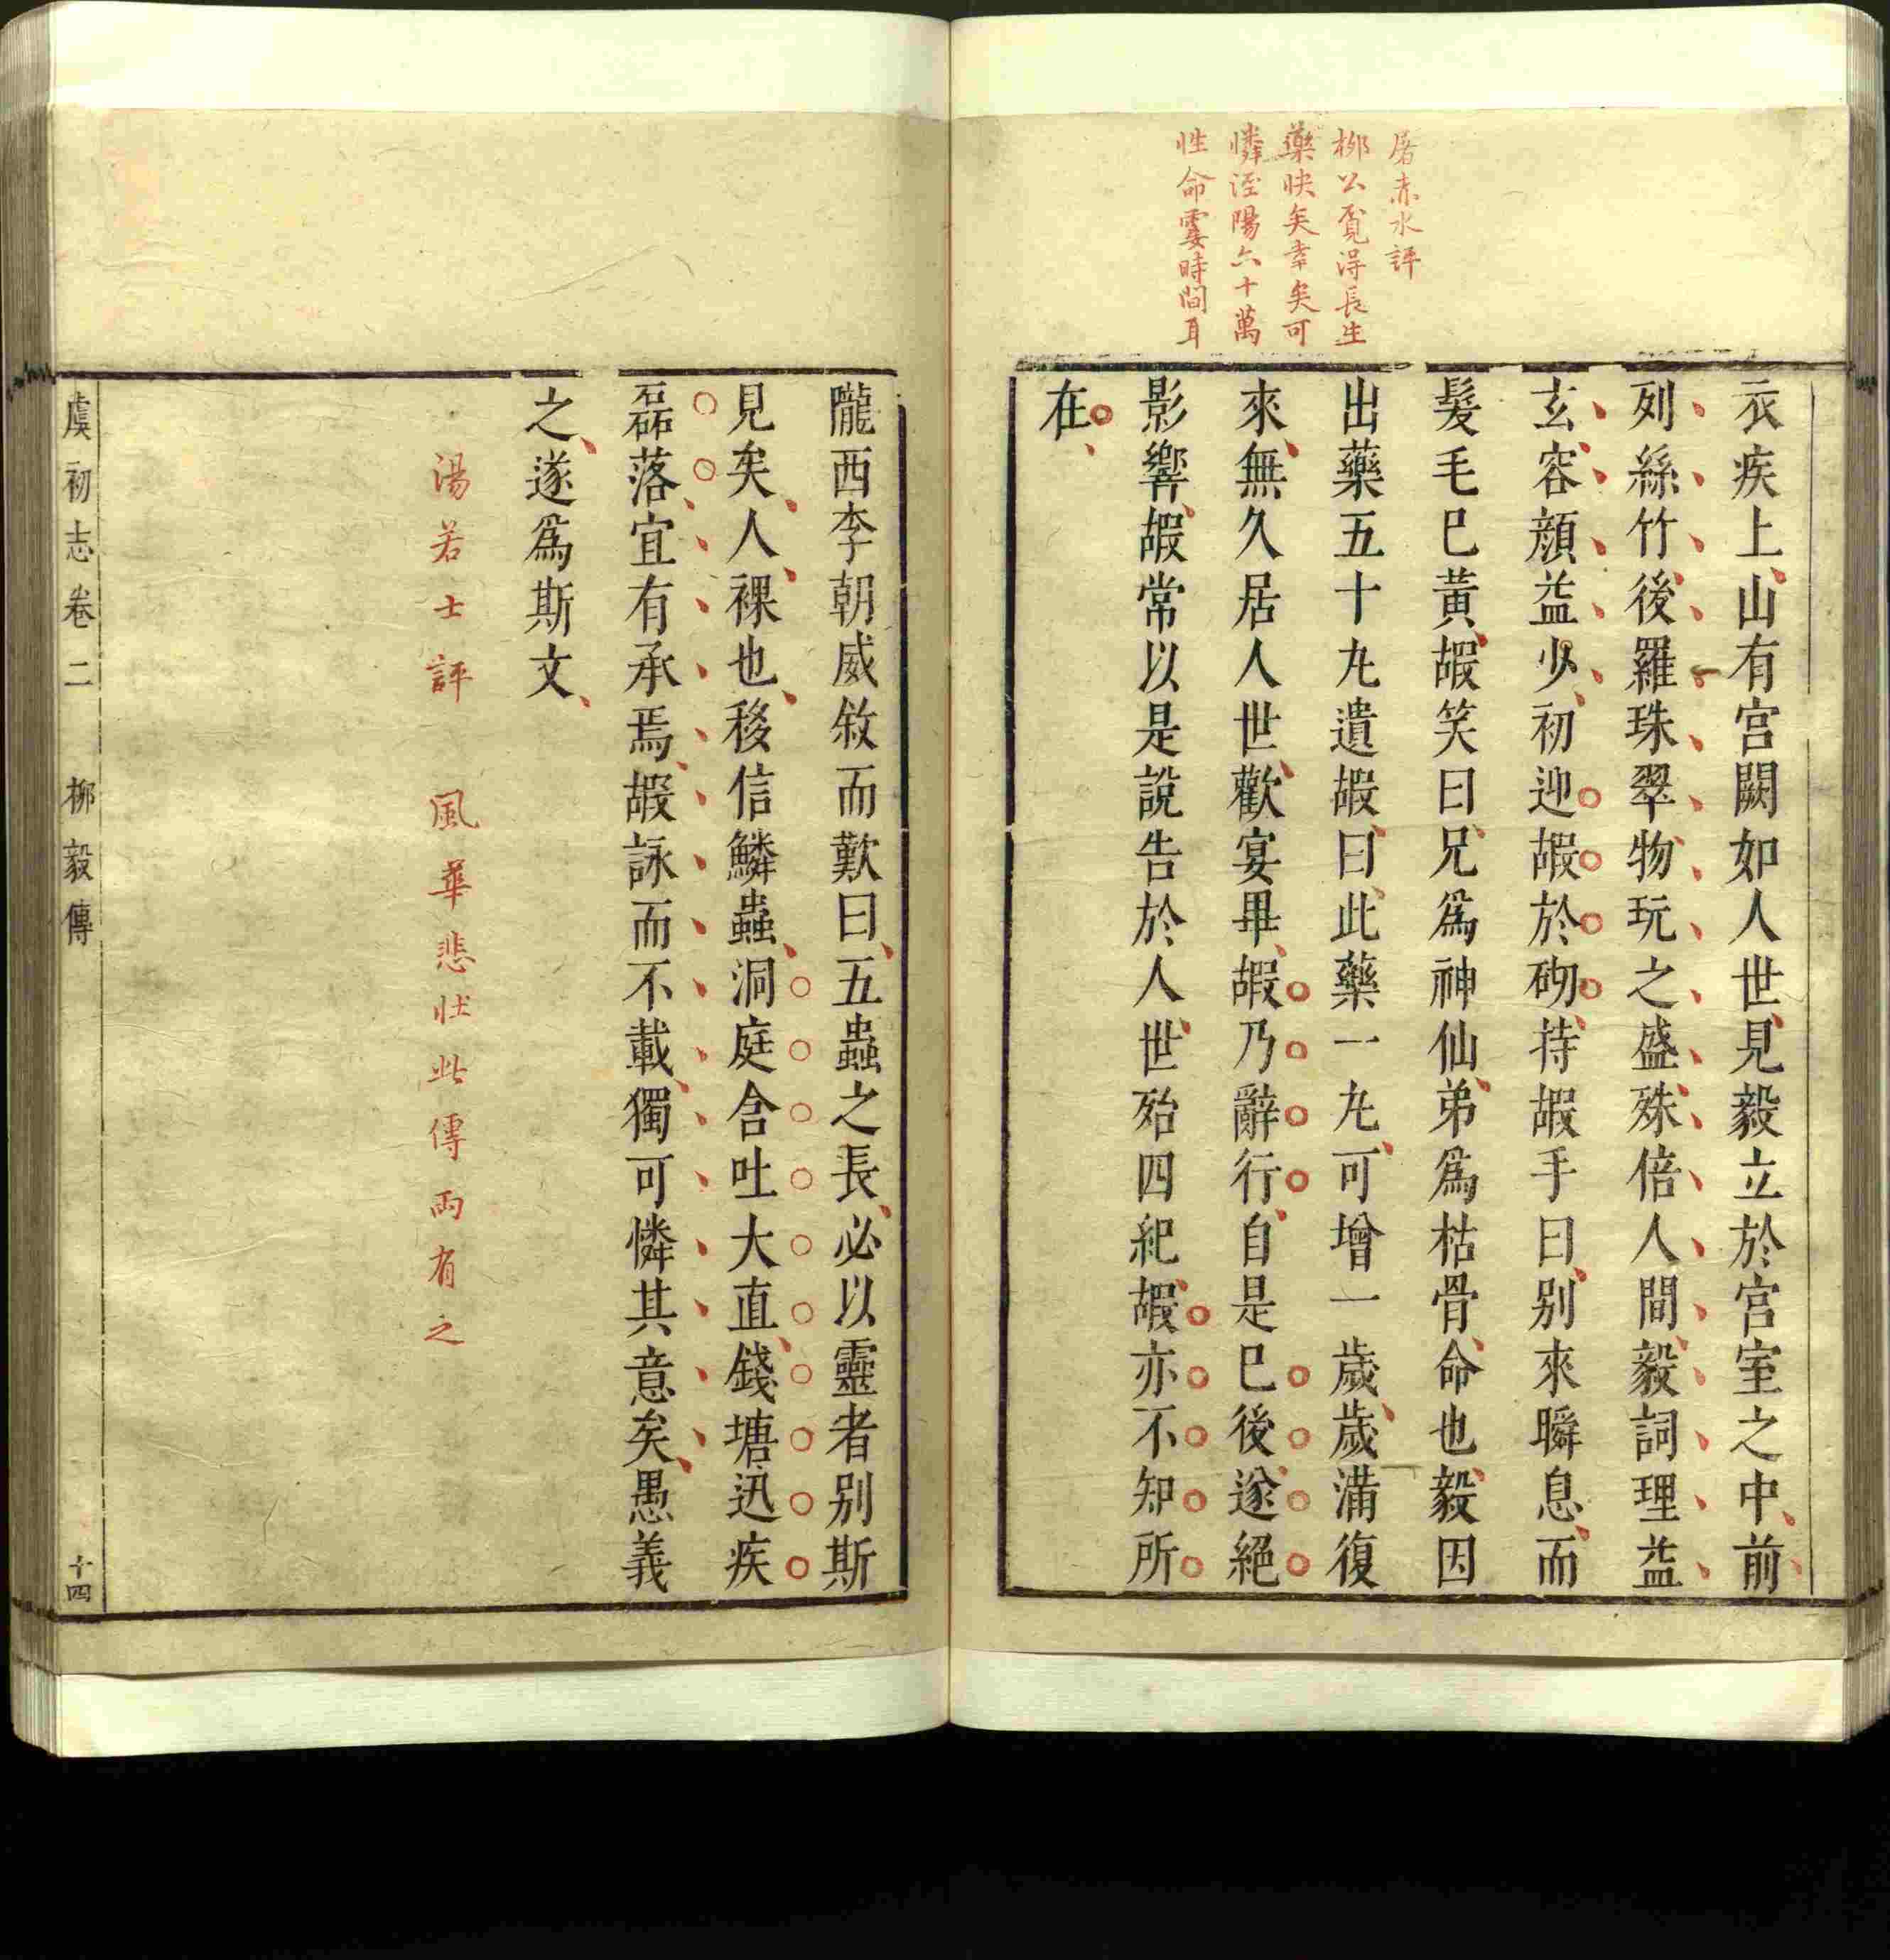 屠赤水評
柳公覔得長生
藥快矣幸矣可
憐涇陽六十萬
性命霎時間耳
衣疾上山有宮闕如人世見毅立於宮室之中前
列絲竹後羅珠翠物玩之盛殊倍人間毅詞理益
玄容顏益少初迎嘏於砌持嘏手曰别來瞬息而
髮毛已黃嘏笑曰兄爲神仙弟爲枯骨命也毅因
出藥五十九遺嘏曰此藥一九可增一歲歲滿復
來無久居人世歡宴畢嘏乃辭行自是已後遂絕
影響嘏常以是說告於人世殆四紀嘏亦不知所
在
隴西李朝威敘而歎曰五蟲之長必以靈者别斯
見矣人裸也移信鱗蟲洞庭含吐大直錢塘迅疾
磊落宜有承焉嘏詠而不載獨可憐其意矣愚義
之遂爲斯文
湯若士評 風華悲壯此傳兩有之
虞初志卷二 柳毅傳 十四